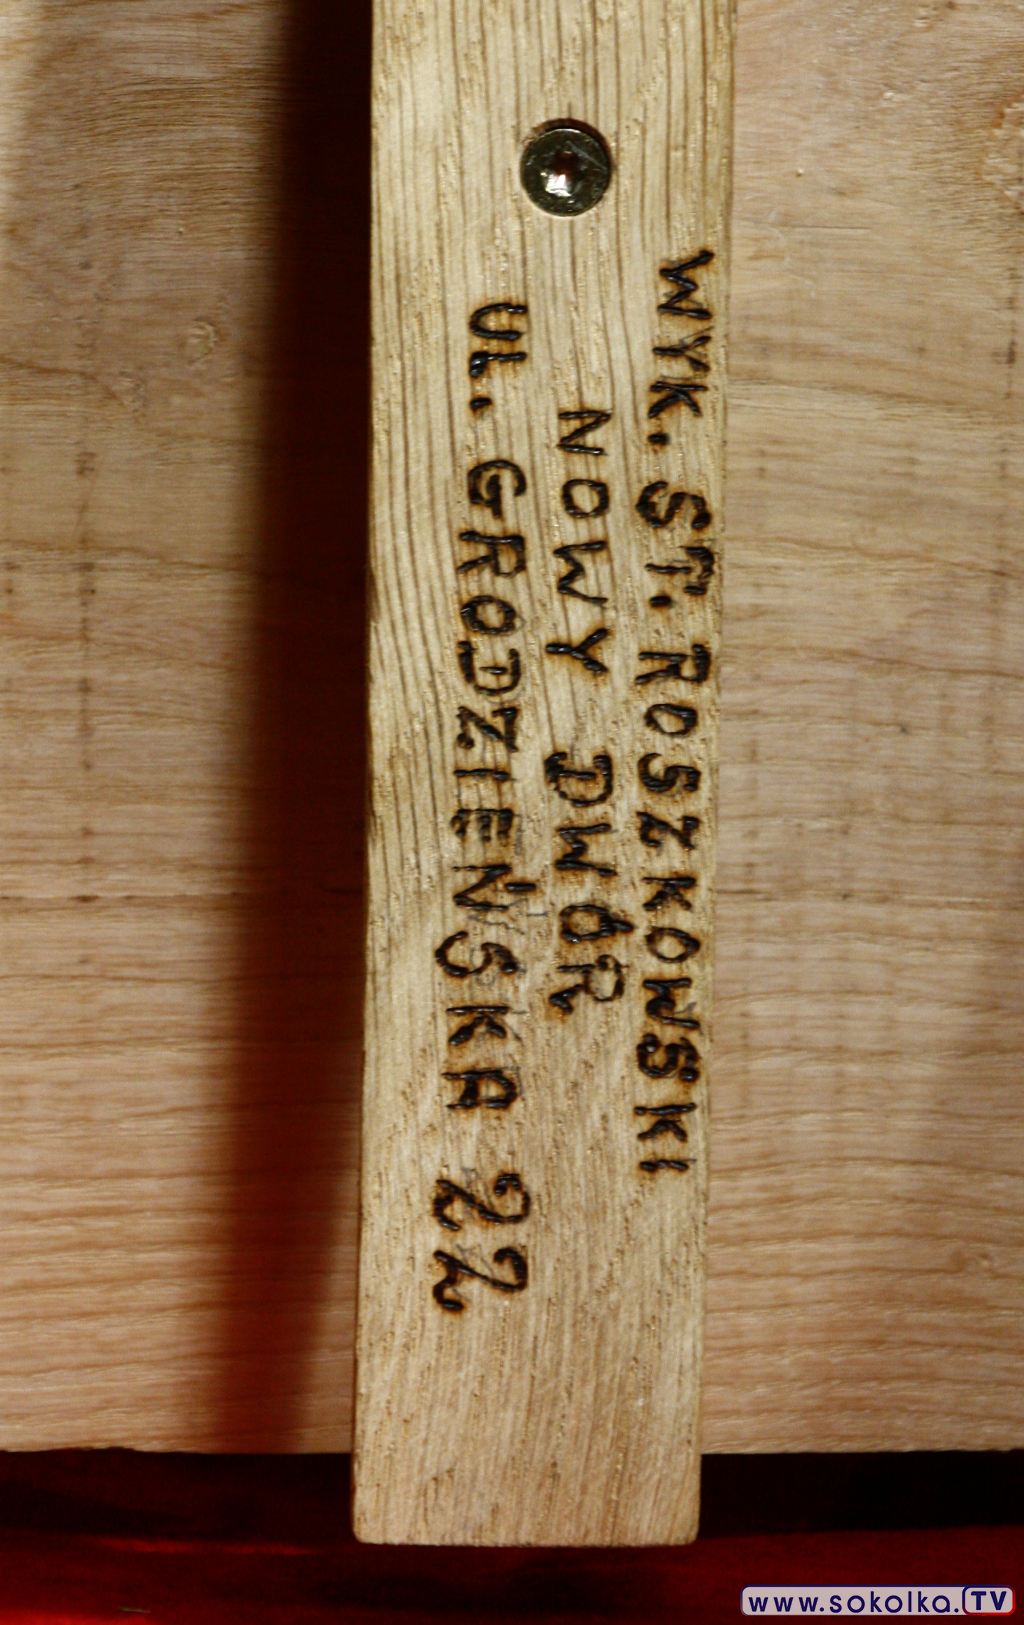 WYK. ST. ROSZKOWSKI
NOWY DWÓR
UL. GRODZIEŃSKA 22
www.sokolka.TV